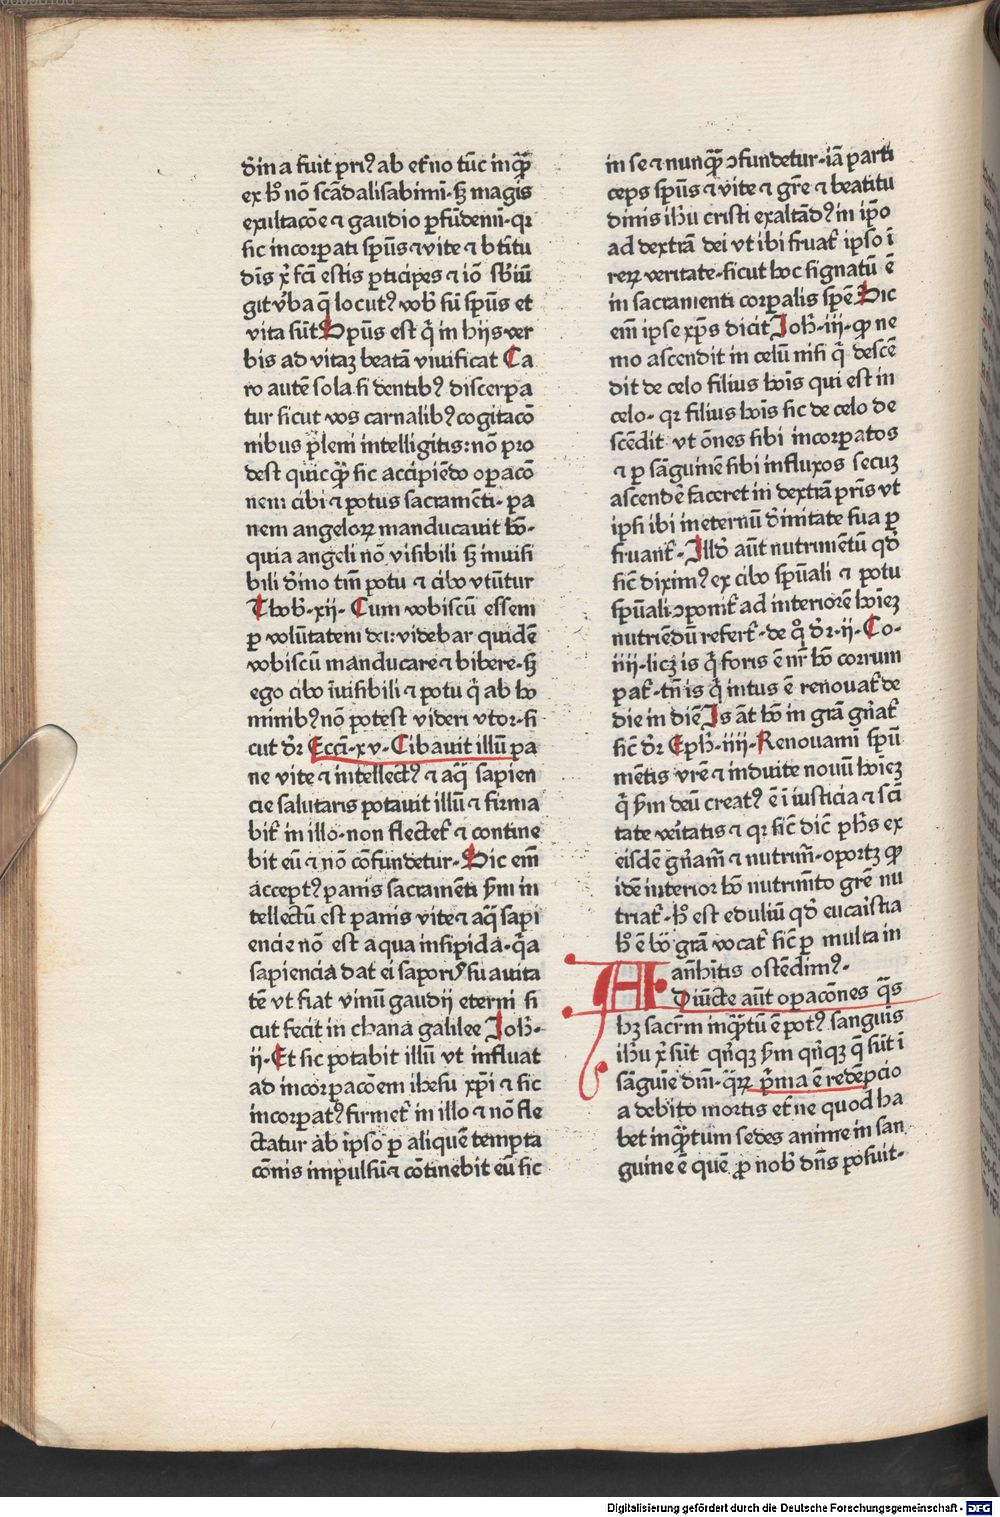 d̓in a fuit pri⁹ ab et̓no tūc inq̄ꝫ
ex h̓ nō scādalisabimī · sꝫ magis
exultacōe ⁊ gaudio ꝑfūdemī · qr
sic incorꝑati spūs ⁊ vite ⁊ btītu
dīs xͥ fc̄i estis ꝑticipes ⁊ iō sb̓iū
git v̓ba q̄ locut⁹ vob̓ sū spūs et
vita sūt Spūs est q̄ in hijs ver
bis ad vitaꝫ beatā viuificat Ca
ro autē sola si dentib⁹ discerpa
tur sicut vos carnalib⁹ cogitacō
nibus p̄lem intelligitis: nō pro
dest quicq̄ꝫ sic accipiēdo oꝑacō
nem cibi ⁊ potus sacramēti · pa
nem angeloꝝ manducauit hō ·
quia angeli nō visibili sꝫ inuisi
bili d̓ino tm̄ potu ⁊ cibo vtūtur
Thob̓ · xij · Cum vobiscū essem
ꝑ volūtatem dei: videbar quidē
vobiscū manducare ⁊ bibere · sꝫ
ego cibo īuisibili ⁊ potu q̄ ab ho
minib⁹ nō potest videri vtor · si
cut d̓r Ecci̅ · xv · Cibauit illū pa
ne vite ⁊ intellect⁹ ⁊ aq̄ sapien
cie salutaris potauit illū ⁊ firma
bit̓ in illo · non flectet̓ ⁊ contine
bit eū ⁊ nō cōfundetur · Sic em̄
accept⁹ panis sacramēti ẏm in
tellectū est panis vite ⁊ aq̄ sapi
encie nō est aqua insipida · q̄a
sapiencia dat ei saporē sūauita
tē vt fiat vinū gaudij eterni si
cut fecit in chana galilee Joh̓ ·
ij · Et sic potabit illū vt influat
ad incorꝑacōem ihesu xp̄i ⁊ sic
incorꝑat⁹ firmet̓ in illo ⁊ nō fle
ctatur ab ipso ꝑ aliquē tempta
cōnis impulsū ⁊ cōtinebit eū sic
in se ⁊ nunq̄ꝫ ↄfundetur · iā parti
ceps spūs ⁊ vite ⁊ gr̄e ⁊ beatitu
dinis ih̓u cristi exaltād⁹ in ip̄o
ad dextrā dei vt ibi fruat̓ ipso ī
reꝝ veritate · sicut hoc signatū ē
in sacramenti corꝑalis spē Sic
em̄ ipse xp̄s dicit Joh̓ · iij · ꝙ ne
mo ascendit in celū nisi q̄ descē
dit de celo filius hoīs qui est in
celo · qr filius hoīs sic de celo de
scēdit vt ōnes sibi incorꝑatos
⁊ ꝑ sāguinē sibi influxos secuꝫ
ascendē faceret in dextrā pr̄is vt
ipsi ibi ineternū d̓initate sua ꝑ
fruant̓ · Illd̓ aūt nutrimētū qd̓
sic̄ dixim⁹ ex cibo spūali ⁊ potu
spūali ↄponit̓ ad interiorē hoīeꝫ
nutriendū refert̓ · de q̊ d̓r · ij · Co ·
iiij · licꝫ is q̄ foris ē nr̄ hō corrum
pat̓ · tn̄ is q̄ intus ē renouat̓ de
die in diē Is āt hō in grā gn̄at̓
sic̄ d̓r Eph̓ · iiij · Renouamī spū
mētis vr̄e ⁊ induite nouū hoīeꝫ
q̄ ẏm deū creat⁹ ē ī iusticia ⁊ sc̄i
tate v̓itatis ⁊ qr sic̄ dic̄ ph̓s ex
eisdē gn̄am̄ ⁊ nutrim̄ · oportꝫ ꝙ
idē interior hō nutrim̄to gr̄e nu
triat̓ · h̓ est eduliū qd̓ eucaīstia
h̓ ē bō grā vocat̓ sic̄ ꝑ multa in
an̄h̓itis ostēdim⁹ ·
A Diūcte aūt oꝑacōnes q̄s
hꝫ sacr̄m inq̄ꝫtū ē pot⁹ sanguis
ih̓u xͥ sūt qn̄qꝫ ẏm qn̄qꝫ q̄ sūt ī
sāguīe dnī · q̄ꝝ p̄ma ē redēpcio
a debito mortis et̓ne quod ha
bet inq̄ꝫtum sedes anime in san
guine ē quē ꝓ nob̓ dn̄s posuit ·
Digitalisierung gefördert durch die Deutsche Forschungsgemeinschaft - DFG